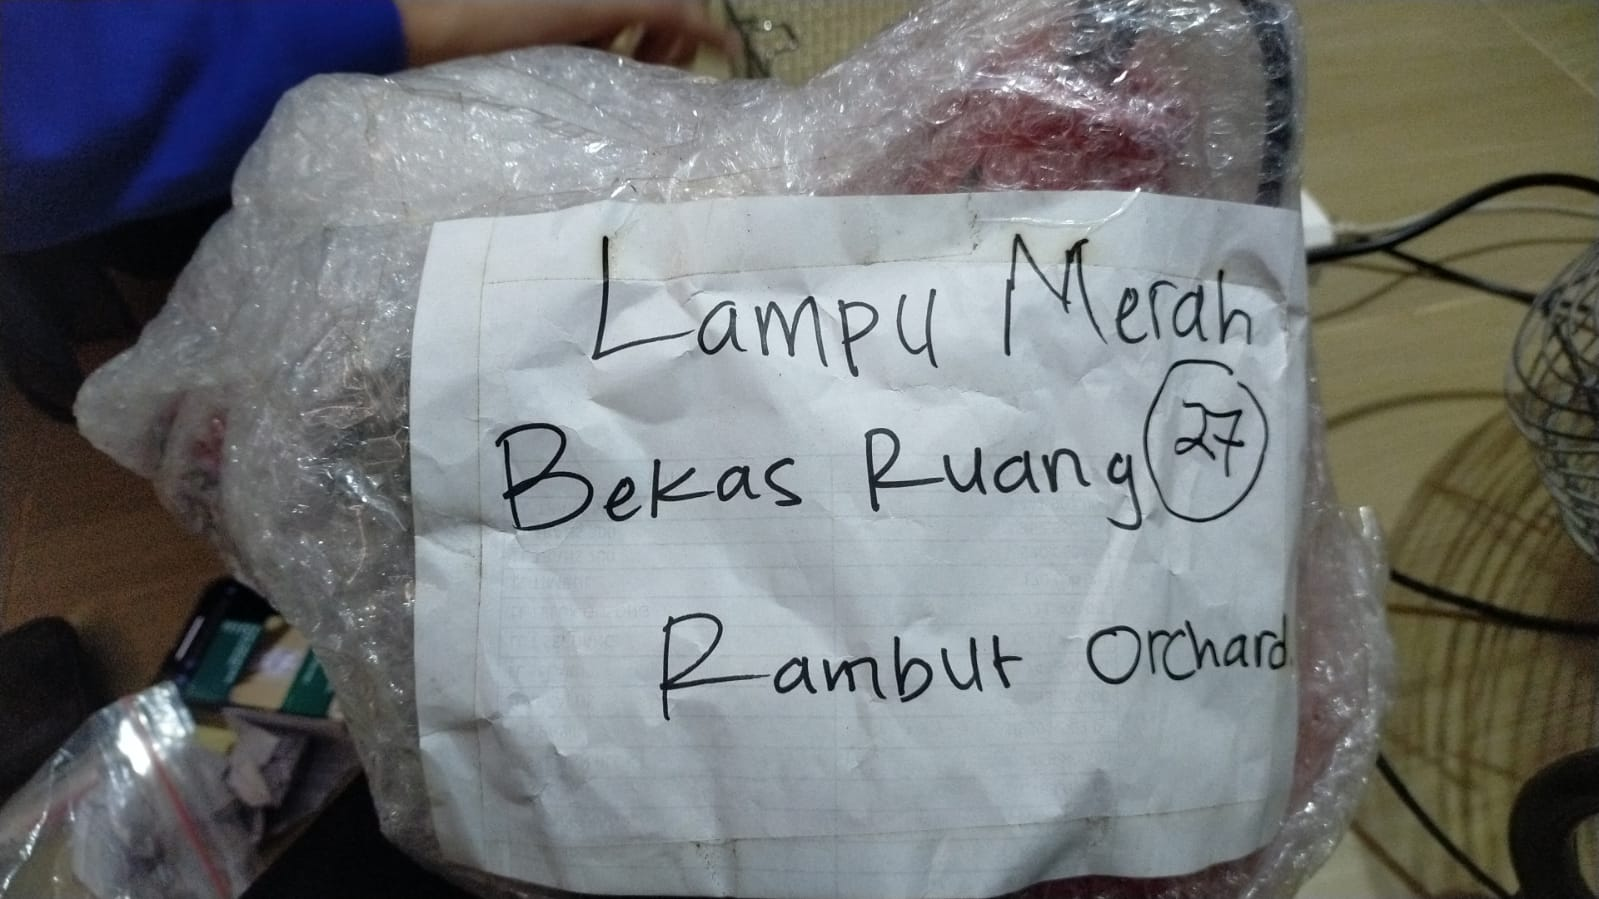 Lampu Merah
Bekas Ruang 27
Rambut Orchard.